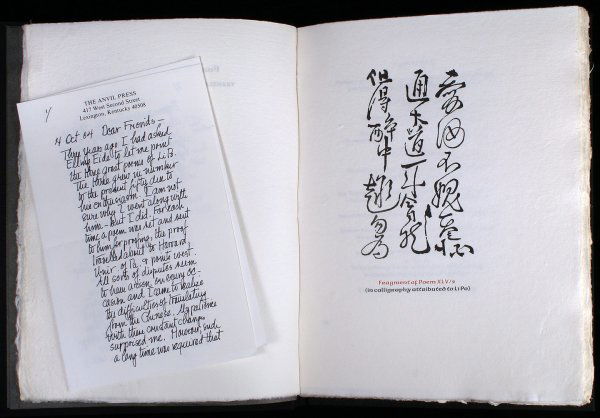 THE ANVIL PRESS
417 West Second Street
Lexington, Kentucky 40508
14 Oct 84 Dear Friends —
Three years ago I had asked
Elling Eide to let me print
the three great poems of Li Bo.
The three grew in number
to the present fifty due to
his enthusiasm. I am not
sure why I went along with
him — but I did. For each
time a poem was set and sent
to him for proofing, the proof
travelled about to Harvard
Univ of Pa. & points west.
All sorts of disputes seem
to have arisen on every oc-
casion and I came to realize
the difficulties of translating
from the Chinese. My patience
with these constant changes
surprised me. However, such
a long time was required that
不
通大道一斗合自然
但得醉中趣勿為
Fragment of Poem XLV/2
(in calligraphy attributed to Li Po)